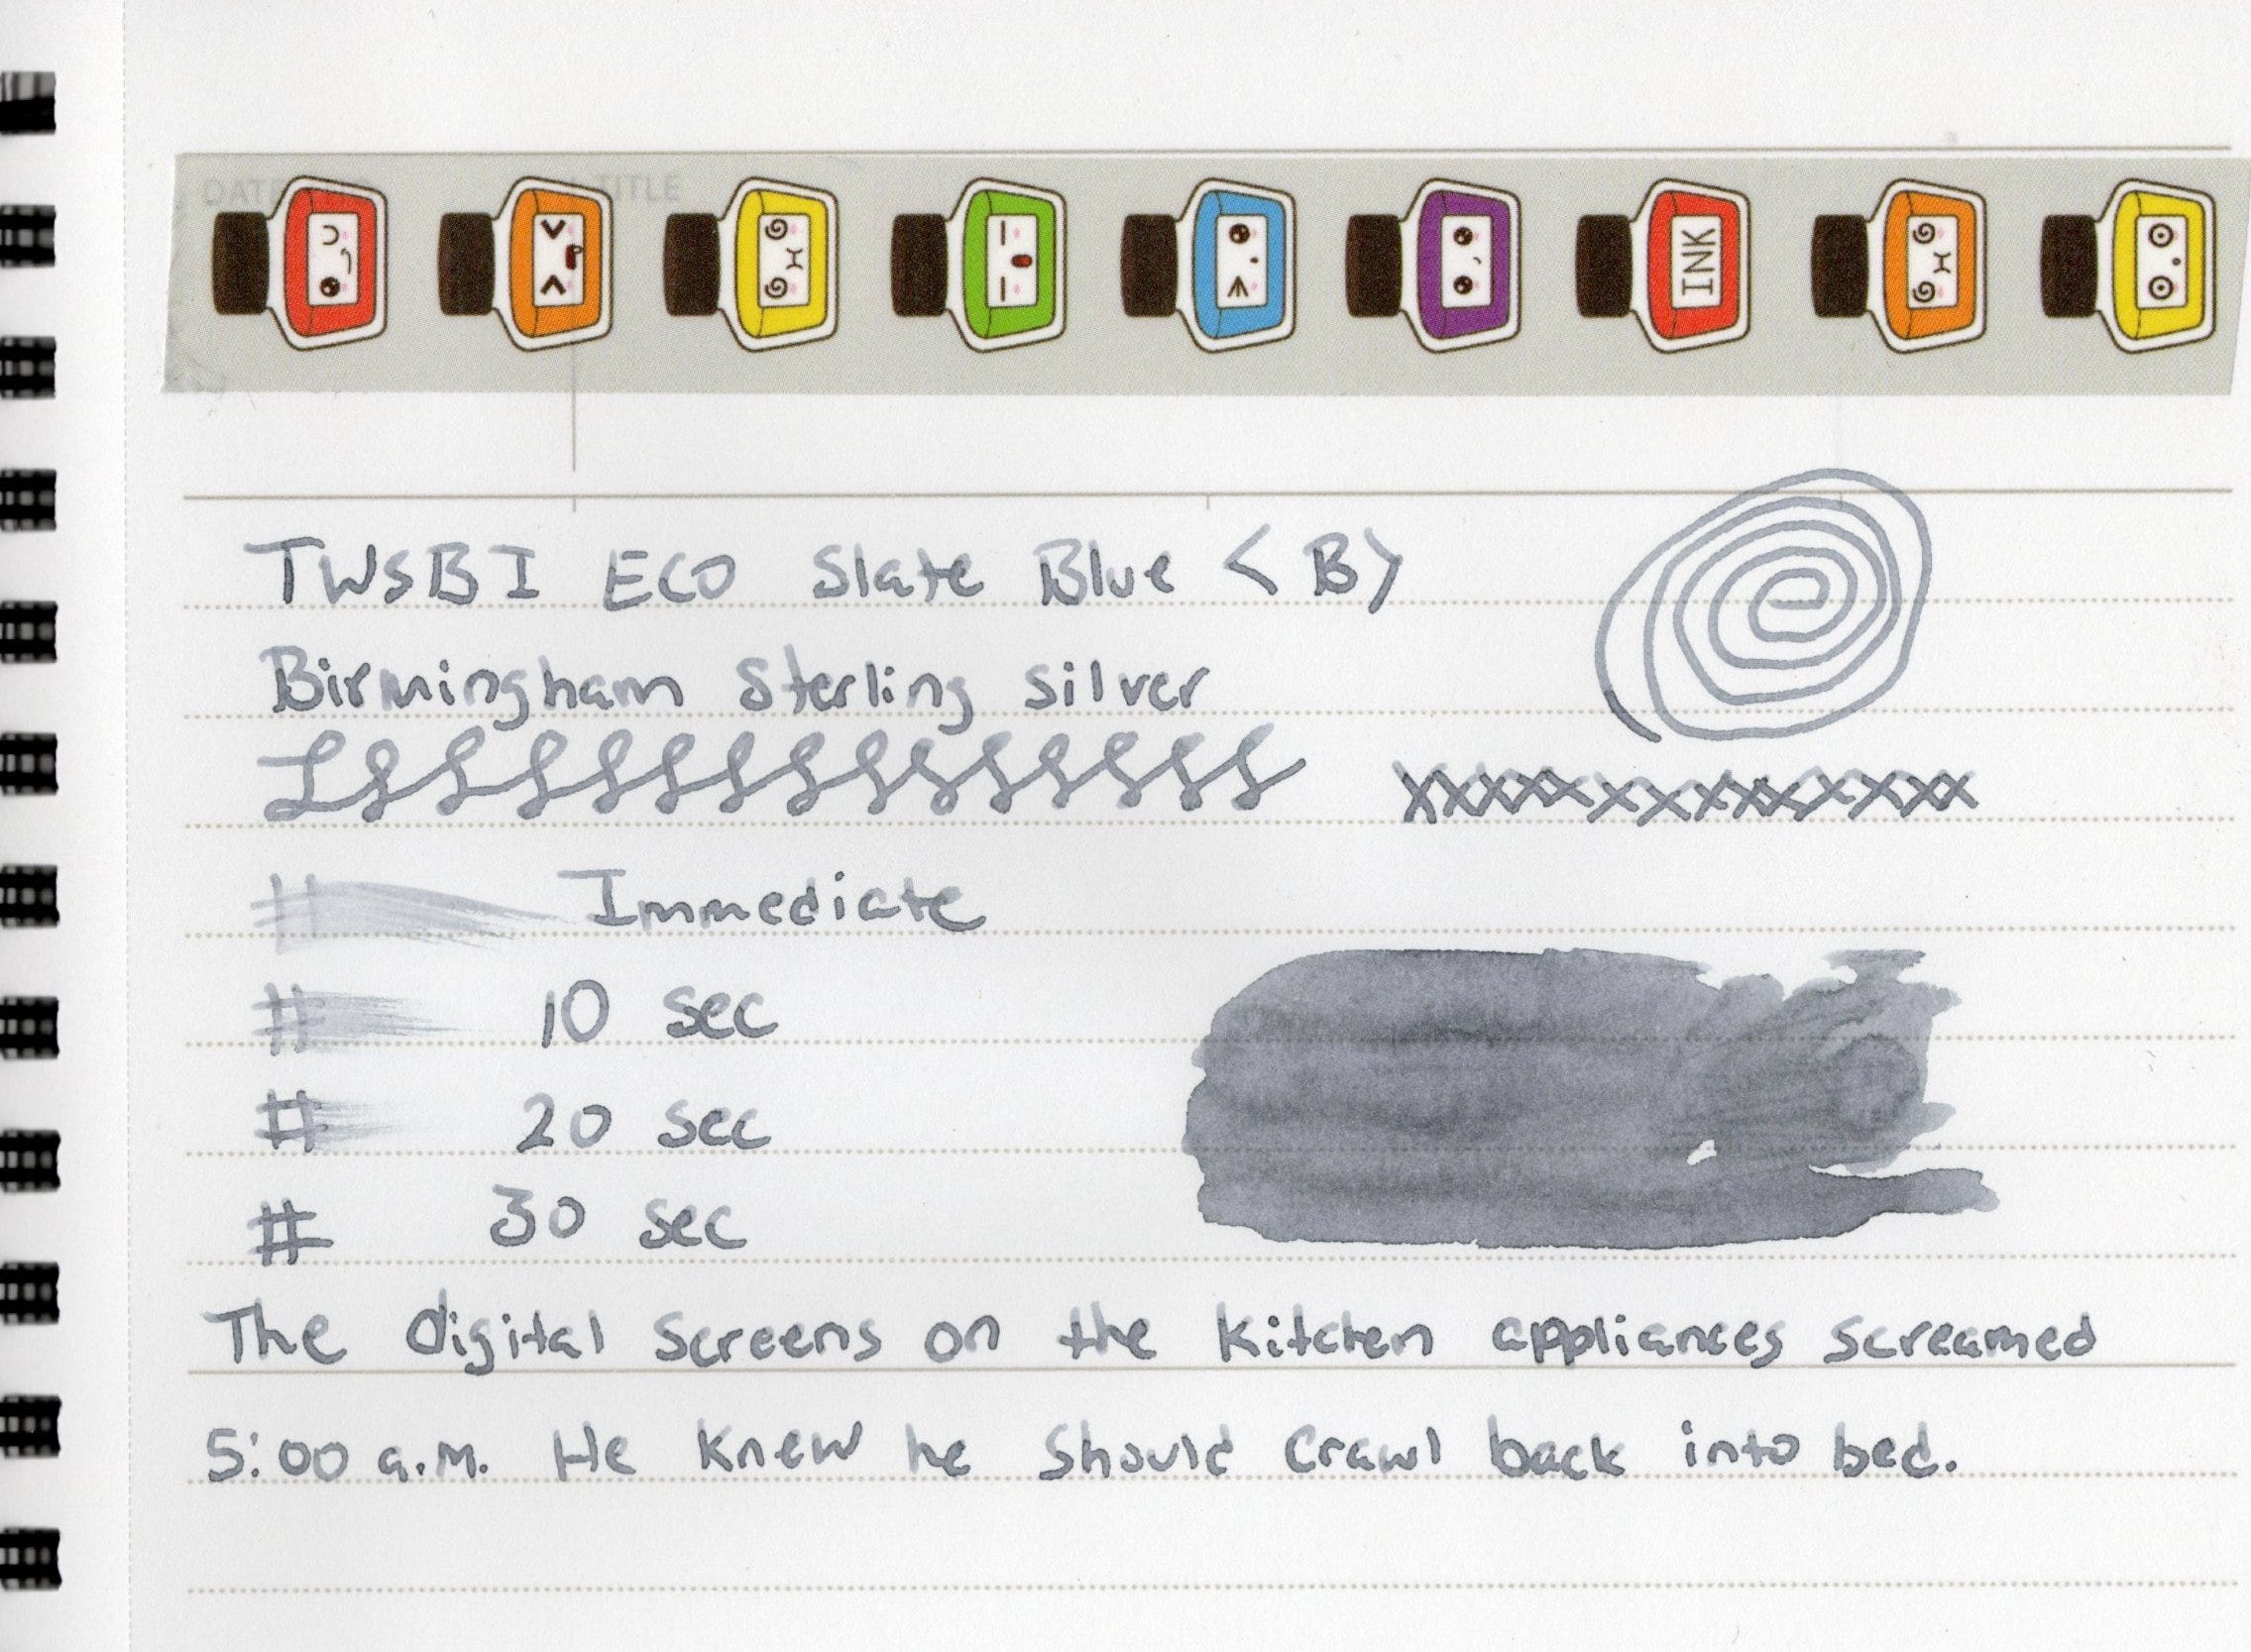 DATE TITLE
INK
TWSBI ECO Slate Blue <B>
Birmingham Sterling Silver
XXXXXXXXXXXXXX
# Immediate
# 10 sec
# 20 sec
# 30 sec
The Digital Screens on the Kitchen appliances screamed
5:00 a.m. He Knew he Should Crawl back into bed.